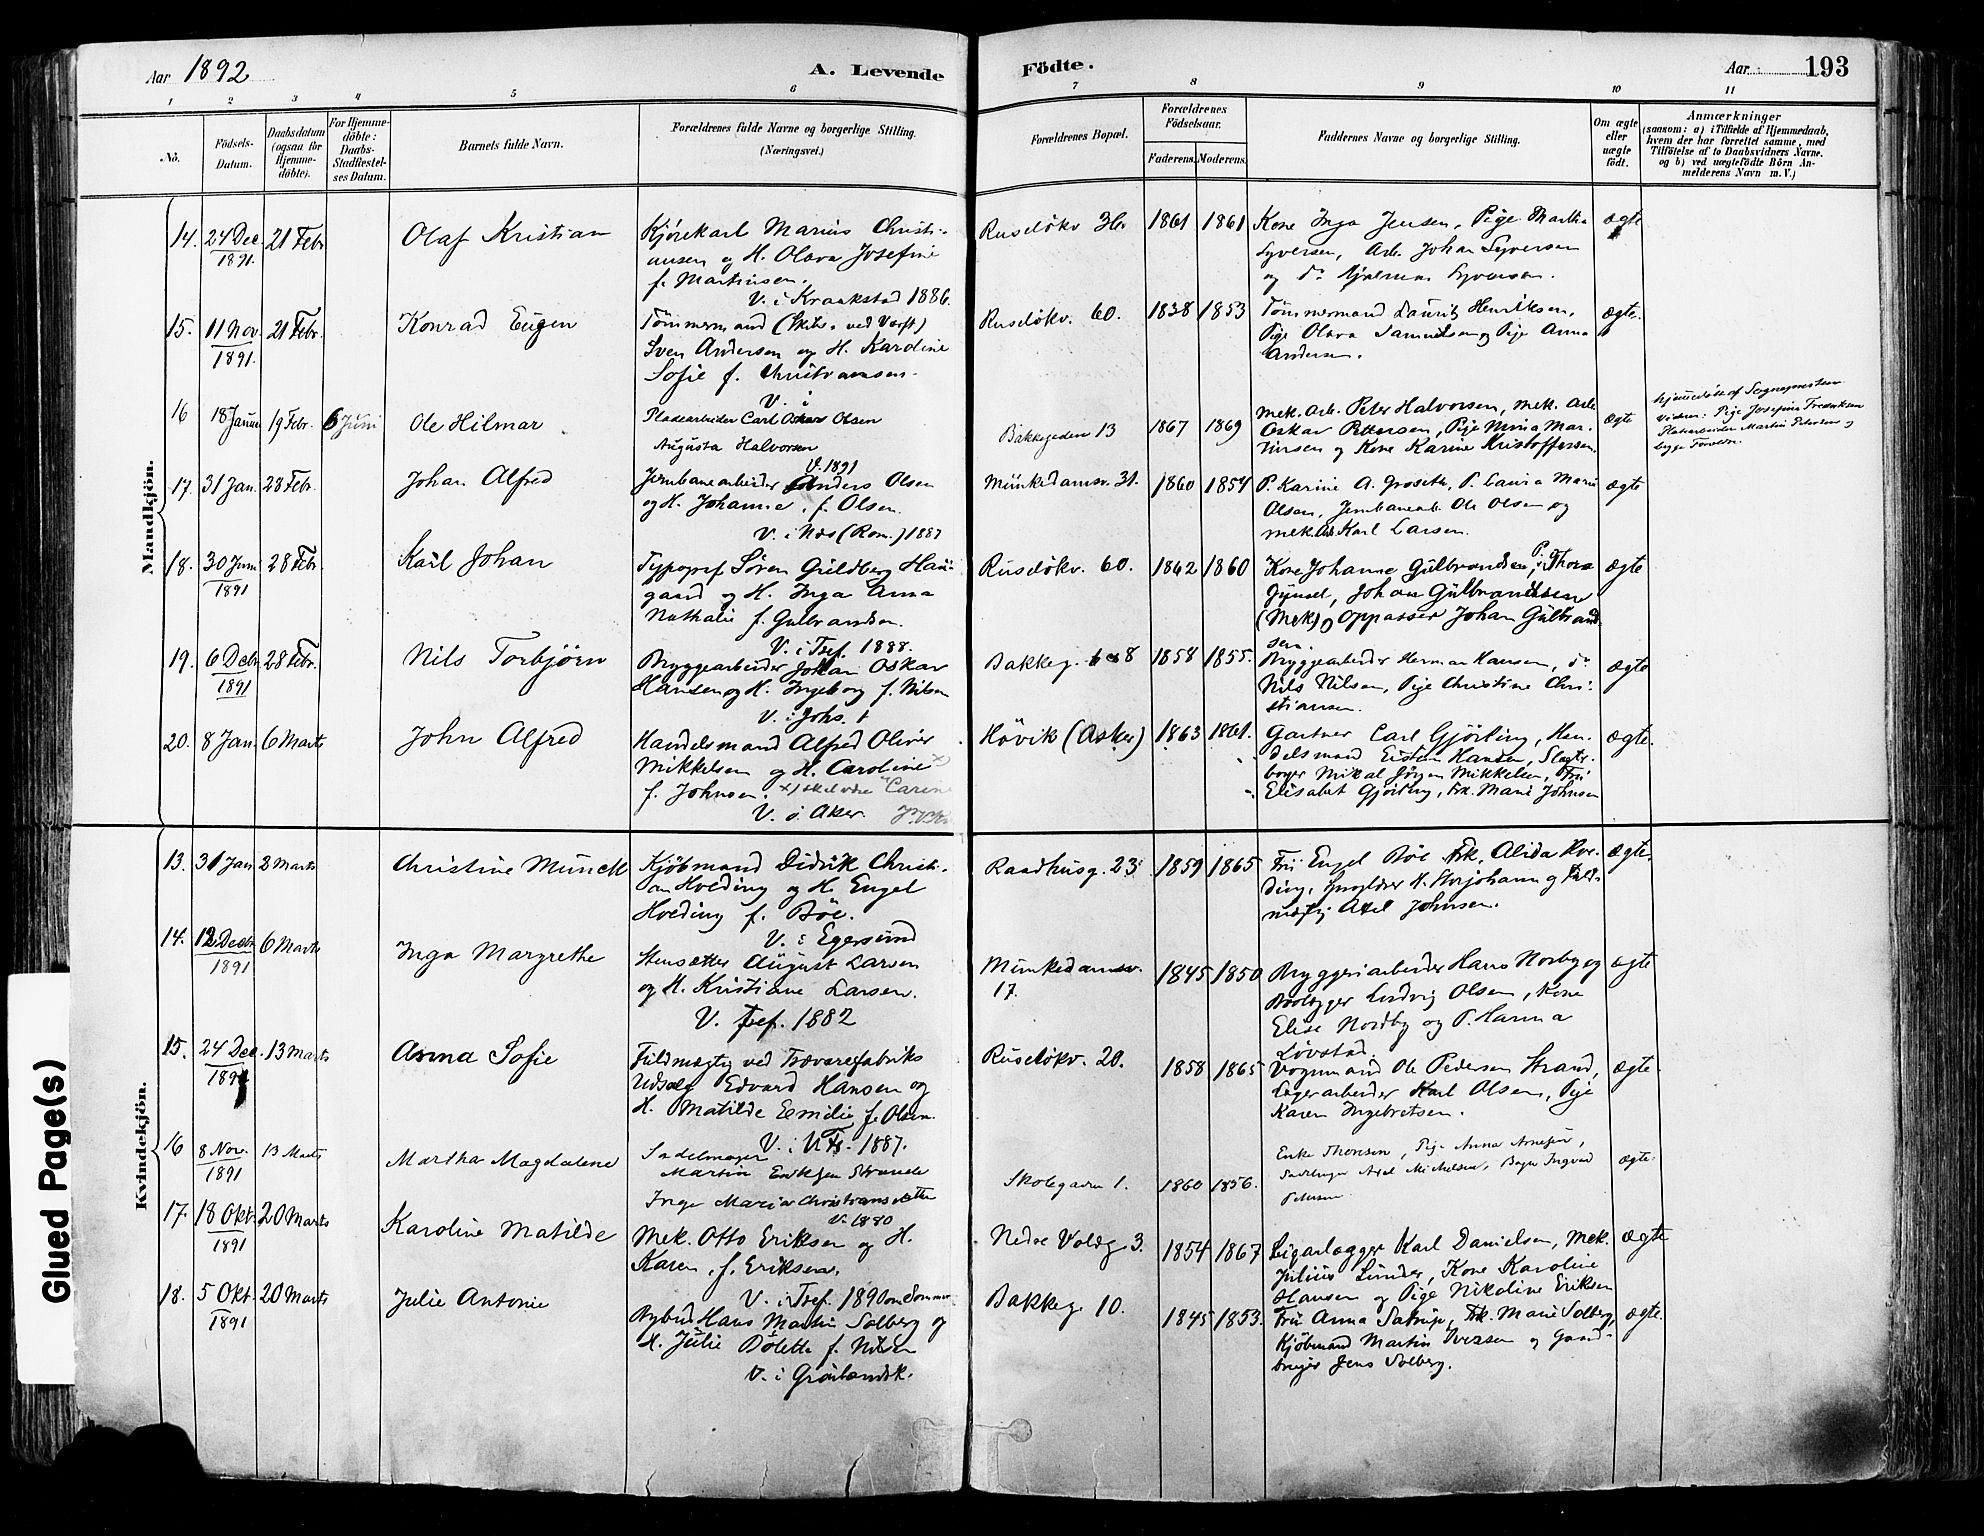 Aar 1892
A. Levende
Födte.
Aar 193
1 2 3 4 5 6 7 8 9 10 11
No.
Födsels-Datum.
Daabsdatum (ogsaa for Hjemmedöbte).
For Hjemmedöbte: Daabs-Stadfæstelses Datum.
Barnets fulde Navn.
Forældrenes fulde Navne og borgerlige Stilling.
(Næringsvei.)
Forældrenes Bopæl.
Forældrenes Födselsaar.
Faderens. Moderens.
Faddernes Navne og borgerlige Stilling.
Om ægte eller uægte födt.
Anmærkninger
(saasom: a) i Tilfælde af Hjemmedaab,
hvem der har forrettet samme, med
Tilföielse af to Daabsvidners Navne,
og b) ved uægtefödte Börn An-
melderens Navn m. V.)
Mandkjön.
14. 24 Dec 1891. 21 Febr Olaf Kristian
Kjørekarl Marius Christi-
ansen og H. Olava Josefine
f. Martinsen.
V. i Kraakstad 1886.
Ruseløkv 36 1861 1861
Kone Inga Jensen, Pige Martha
Syversen, Arb. Johan Syversen
og do Hjalmar Syversen.
ægte
15. 11 Nov. 1891. 21 Febr. Konrad Eugen
Tømmermand (Skibs. ved Værft)
Sven Andersen og H. Karoline
Sofie f. Christiansen.
V. i
Rusløkv. 60. 1838 1853
Tømmermand Lauritz Henriksen,
Pige Olava Samuelsen og Pige Anna
Andersen.
ægte.
16 18 Januar 19 Febr. 6 Juni Ole Hilmar
Pladearbeider Carl Oskar Olsen
Augusta Halvorsen
V. 1891
Bakkegaden 13 1867 1869
Mek. Arb. Peter Halvorsen, Mek. Arb.
Oskar Pettersen, Pige Mina Mar-
tinsen og Kone Karine Kristoffersen.
ægte
Hjemmedøbt af Sognepresten
Vidner: Pige Josefine Fredriksen
Martin Petersen og
begge Forældre.
17. 31 Jan. 28 Febr. Johan Alfred
Jernbanearbeider Anders Olsen
og H. Johanne, f. Olsen.
V. i Næs (Rom.) 1887
Munkedamsv. 31. 1860 1854
P. Karine A. Groseth, P. Laura Marie
Olsen, Jernbanearb. Ole Olsen og
Mek. Arb Karl Larsen.
ægte
18. 30 Juni 1891 28 Febr. Karl Johan
Typograf Søren Guldberg Hau-
gaard og H. Inga Anna
Nathalie f. Gulbrandsen.
V. i Tref. 1888.
Rusløkv. 60. 1862 1860
Kone Johanne Gulbrandsen, P. Thora
Johan Gulbrandsen
(Mek) og Oppasser Johan Gulbrand
sen.
ægte
19. 6 Decbr 1891 28 Febr. Nils Torbjørn
Bryggearbeider Johan Oskar
Hansen og H. Ingeborg f. Nilsen
V. i Johs. †
Bakkeg. 8 1858 1855.
Bryggearbeider Herman Hansen, do
Nils Nilsen, Pige Christine Chri-
stiansen.
ægte
20. 8 Jan. 6 Marts John Alfred
Handelsmand Alfred Oliver
Mikkelsen og H. Caroline x)
f. Johnsen. x) skal være "Carine
V. i Aker.
Høvik (Asker) 1863 1861.
Gartner Carl Gjørling, Han-
delsmand Eistein Hansen, Slagter-
Mikal Jörgen Mikkelsen, Fru
Elisabet Gjörling, Frk. Marie Johnsen
ægte.
Kvindekjön.
13. 31 Jan 2 Marts Christine Munch
Kjøbmand Didrik Christi-
an Hvoding og H. Engel
Hvoding f. Böe.
V. i Egersund
Raadhusg. 23 1859 1865
Fru Engel Böe Frk. Alida Hvo-
ding, H. Storjohann og Fuld-
mægtig Axel Johnsen.
ægte.
14. 12 Decbr. 1891 6 Marts Inga Margrethe
Stensætter August Larsen
og H. Kristiane Larsen.
V. Tref. 1882
Munkedamsv. 17. 1845 1850
Bryggeriarbeider Hans Norby og
Ludvig Olsen, Kone
Elise Nordby og P. Hanna
Løvstad.
ægte
15. 24 Dec. 1891 13 Marts Anna Sofie
Fuldmægtig ved Trævarefabriks
Udsalg Edvard Hansen og
H. Matilde Emilie f. Olsen.
V. i U. Fs. 1887.
Rusløkv. 20. 1858 1865
Vognmand Ole Pedersen Strand,
Lagerarbeider Karl Olsen, Pige
Karen Ingebretsen.
ægte.
16 8 Nov. 1891 13 Marts Martha Magdalene
Sadelmager
Martin Eriksen Strande
Inge Maria Christiansdatter
V. 1880
Skolegaden 1. 1860 1856.
Enke Thorsen, Pige Anna Arnesen,
Sadelmager Axel Michelsen, Ingvad
Petersen
ægte.
17. 18 Okt. 1891 20 Marts Karoline Matilde
Mek. Otto Eriksen og H.
Karen, f. Eriksen.
V. i Tref. 1890 om Sommer
Nedre Voldg 3. 1854 1867
Cigarlægger Karl Danielsen, Mek.
Julius Linder, Kone Karoline
Hansen og Pige Nikoline Eriksen
ægte
18. 5 Okt. 1891 20 Marts Julie Antonie
Bybud Hans Martin Solberg og
H. Julie Bolette f. Nilsen
V. i Grønlandsk.
Bakkeg. 10. 1845 1853.
Fru Anna Satrup, Frk. Marie Solberg,
Kjøbmand Martin Iversen og Gaard-
bruger Jens Solberg.
ægte.
Glued Page(s)